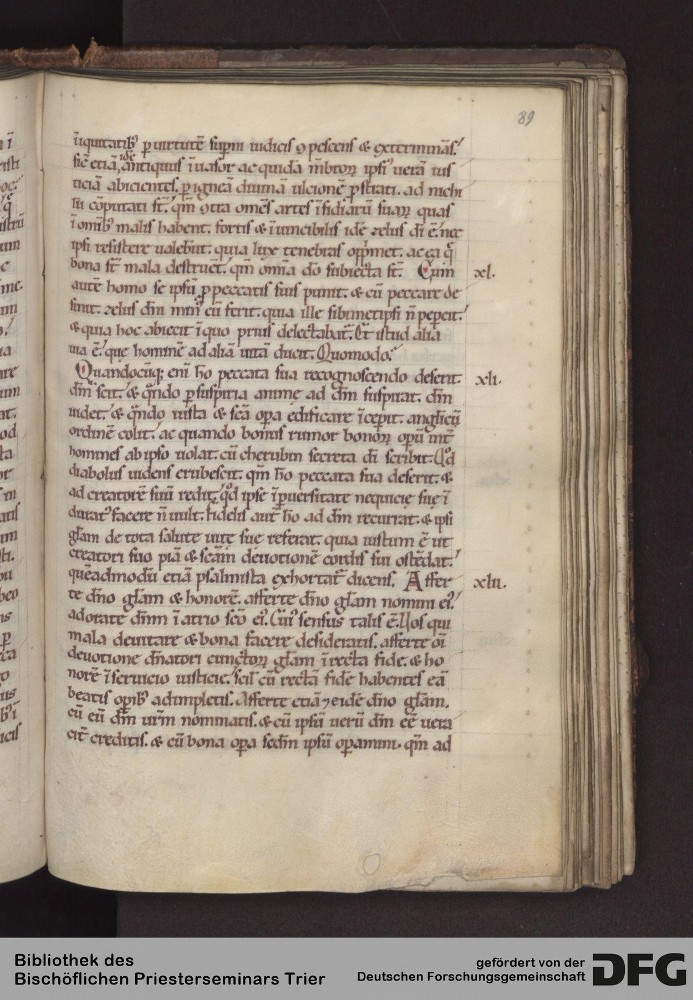 89
iniquitatib; p uirtute supni iudicis ꝯpescens & exterminās.
sic etiā ide antiquus inuasor ac quida mbroꝝ ipsi uerā ius
ticiā abicientes. p igneā diuinā ulcionē pstrati. ad nichi
lū cōputati st. qm ꝯtra omēs artes īsidiarū suaꝝ quas
ī omib malis habent. fortis & īuincibilis idē zelus di ē. nec
ipsi resistere ualebūt. quia lux tenebras opprimet. ac ea q̄
bona st mala destruēt. qm omīa dō subiecta st. Cum xl.
autē homo se ipsū p peccatis suis punit. & cū peccare de
sinit. zelus dni min eū ferit. quia ille sibimetipsi n̄ pepcit.
& quia hoc abiecit ī quo prius delectabat. Et istud alia
uia ē. que hominē ad aliā uitā ducit. Quomodo.
Quandocūq; eni ho peccata sua recognoscendo deserit. xli.
dm scit. & qndo p suspiria anime ad dm suspirat. dm
uidet. & qndo iusta & scā opa edificare īcepit. anglicū
ordinē colit. ac quando bonus rumor bonoꝝ opū int
homines ab ipso uolat. cū cherubin secreta di scribit. Qd
diabolus uidens erubescit. qm ho peccata sua deserit. &
ad creatorē suū redit. qd ipse ī puersitate nequicie sue ī
duratꝰ facere n̄ uult. fidelis aut ho ad dm recurrat. & ipsi
glam de tota salute uite sue referat. quia iustum ē ut
creatori suo piā & scām deuotionē cordis sui ostēdat.
quēadmodū etiā psalmista exhortat dicens. Affer xlii.
te dno glam & honorē. afferte dno glam nomini eiꝰ.
adorate dnm ī atrio sco eiꝰ. Cuiꝰ sensus talis ē. Uos qui
mala deuitare & bona facere desideratis. afferte oī
deuotione dnatori cunctoꝝ glam ī recta fide. & ho
norē ī seruicio iusticie. scil cū rectā fidē habentes eā
beatis opib adimpletis. Afferte etiā ⁊ eidē dno glam.
cū eū dm urm nominatis. & cū ipsū uerū dm eē uera
cit creditis. & cū bona opa scdm ipsū opamini. qm ad
Bibliothek des
Bischöflichen Priesterseminars Trier
gefördert von der
Deutschen Forschungsgemeinschaft
DFG